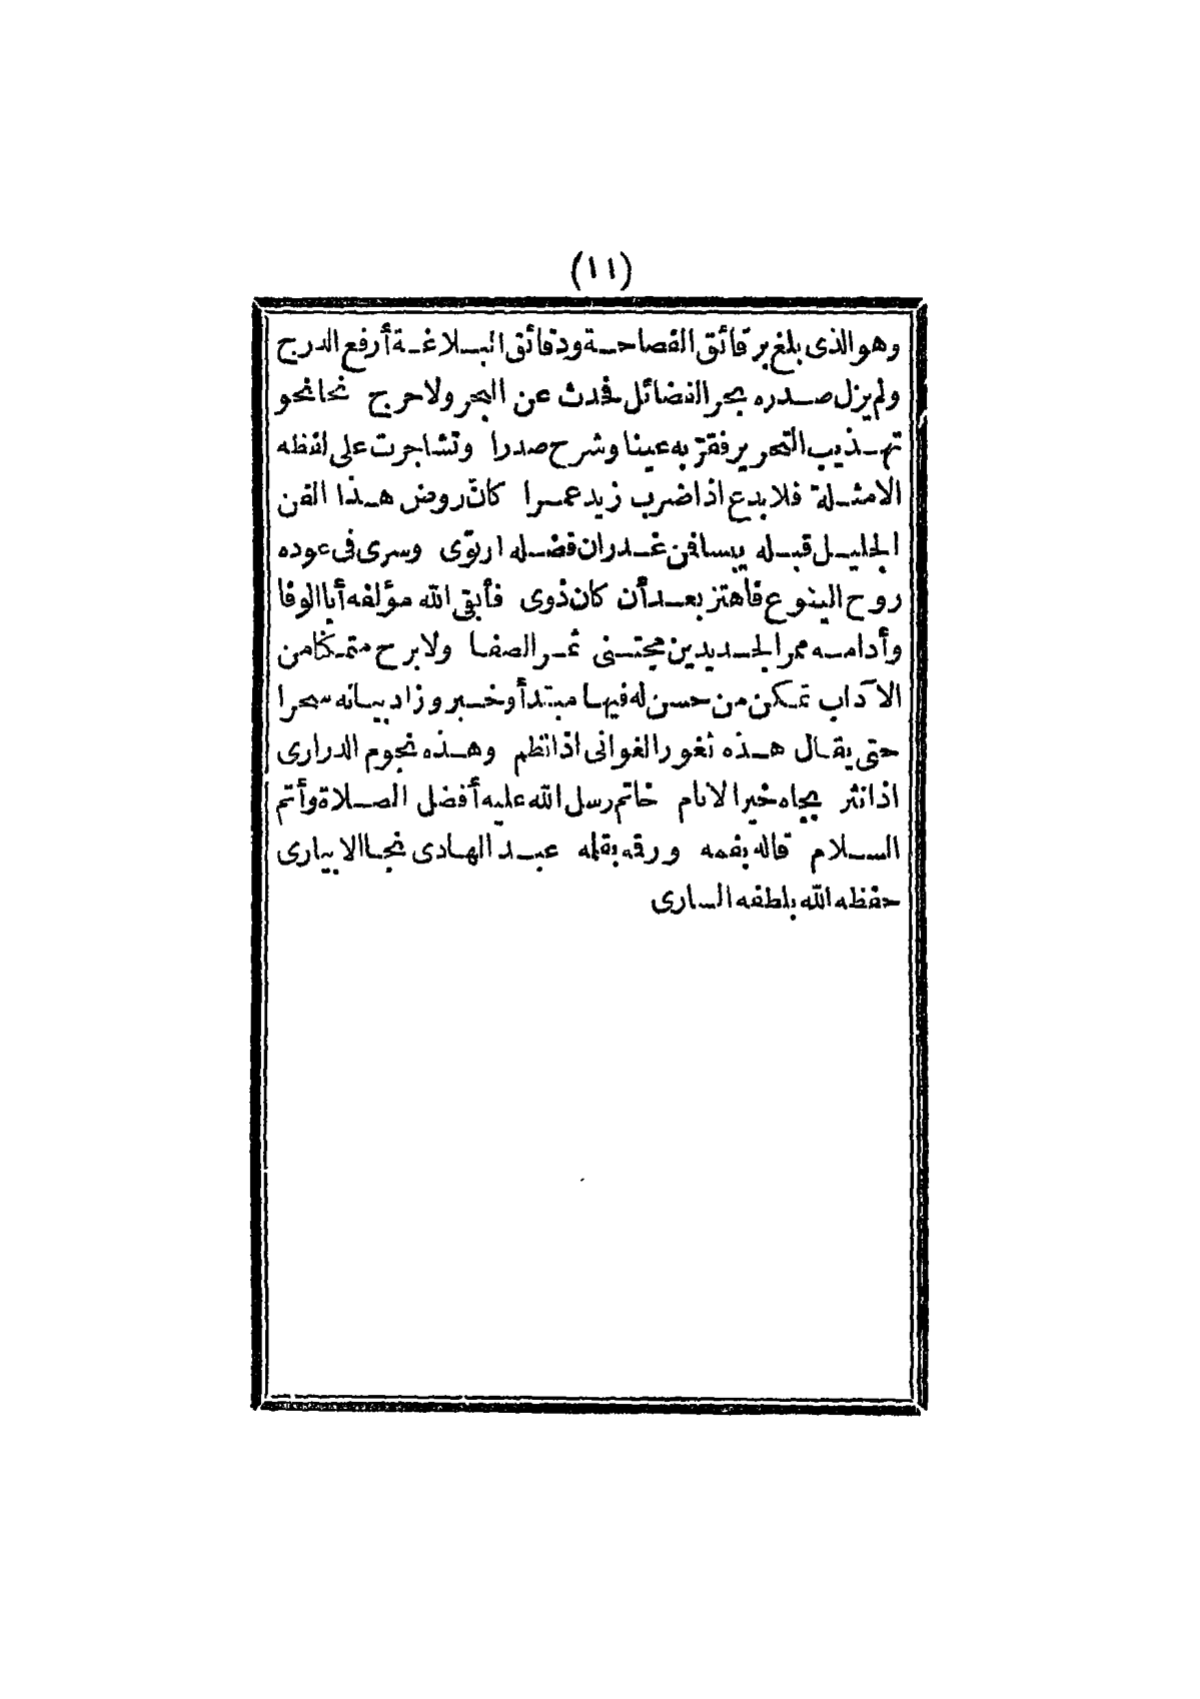 (١١)
وهو الذى بلغ برقائق الفصاحة ودقائق البلاغة أرفع الدرج
ولم يزل صدره بحر الفضائل فحدث عن البحر ولا حرج نحا نحو
تهذيب التحرير فقرّ به عينا وشرح صدرا وتشاجرت على لفظه
الامثلة فلا بدع اذا ضرب زيد عمرا كان روض هذا الفن
الجليل قبله يبسا فمن غدران فضله ارتوى وسرى فى عوده
روح الينوع فاهتز بعد أن كان ذوى فأبقى الله مؤلفه أبا الوفا
وأدامه ممر الجديدين مجتنى ثمر الصفا ولا برح متمكنا من
الآداب تمكن من حسن له فيها مبتدأ وخبر وزاد بيانه سحرا
حتى يقال هذه ثغور الغوانى اذا نظم وهذه نجوم الدرارى
اذا نثر بجاه خير الانام خاتم رسل الله عليه أفضل الصلاة وأتم
السلام قاله بفمه ورقمه بقلمه عبد الهادى نجا الابيارى
حفظه الله بلطفه السارى